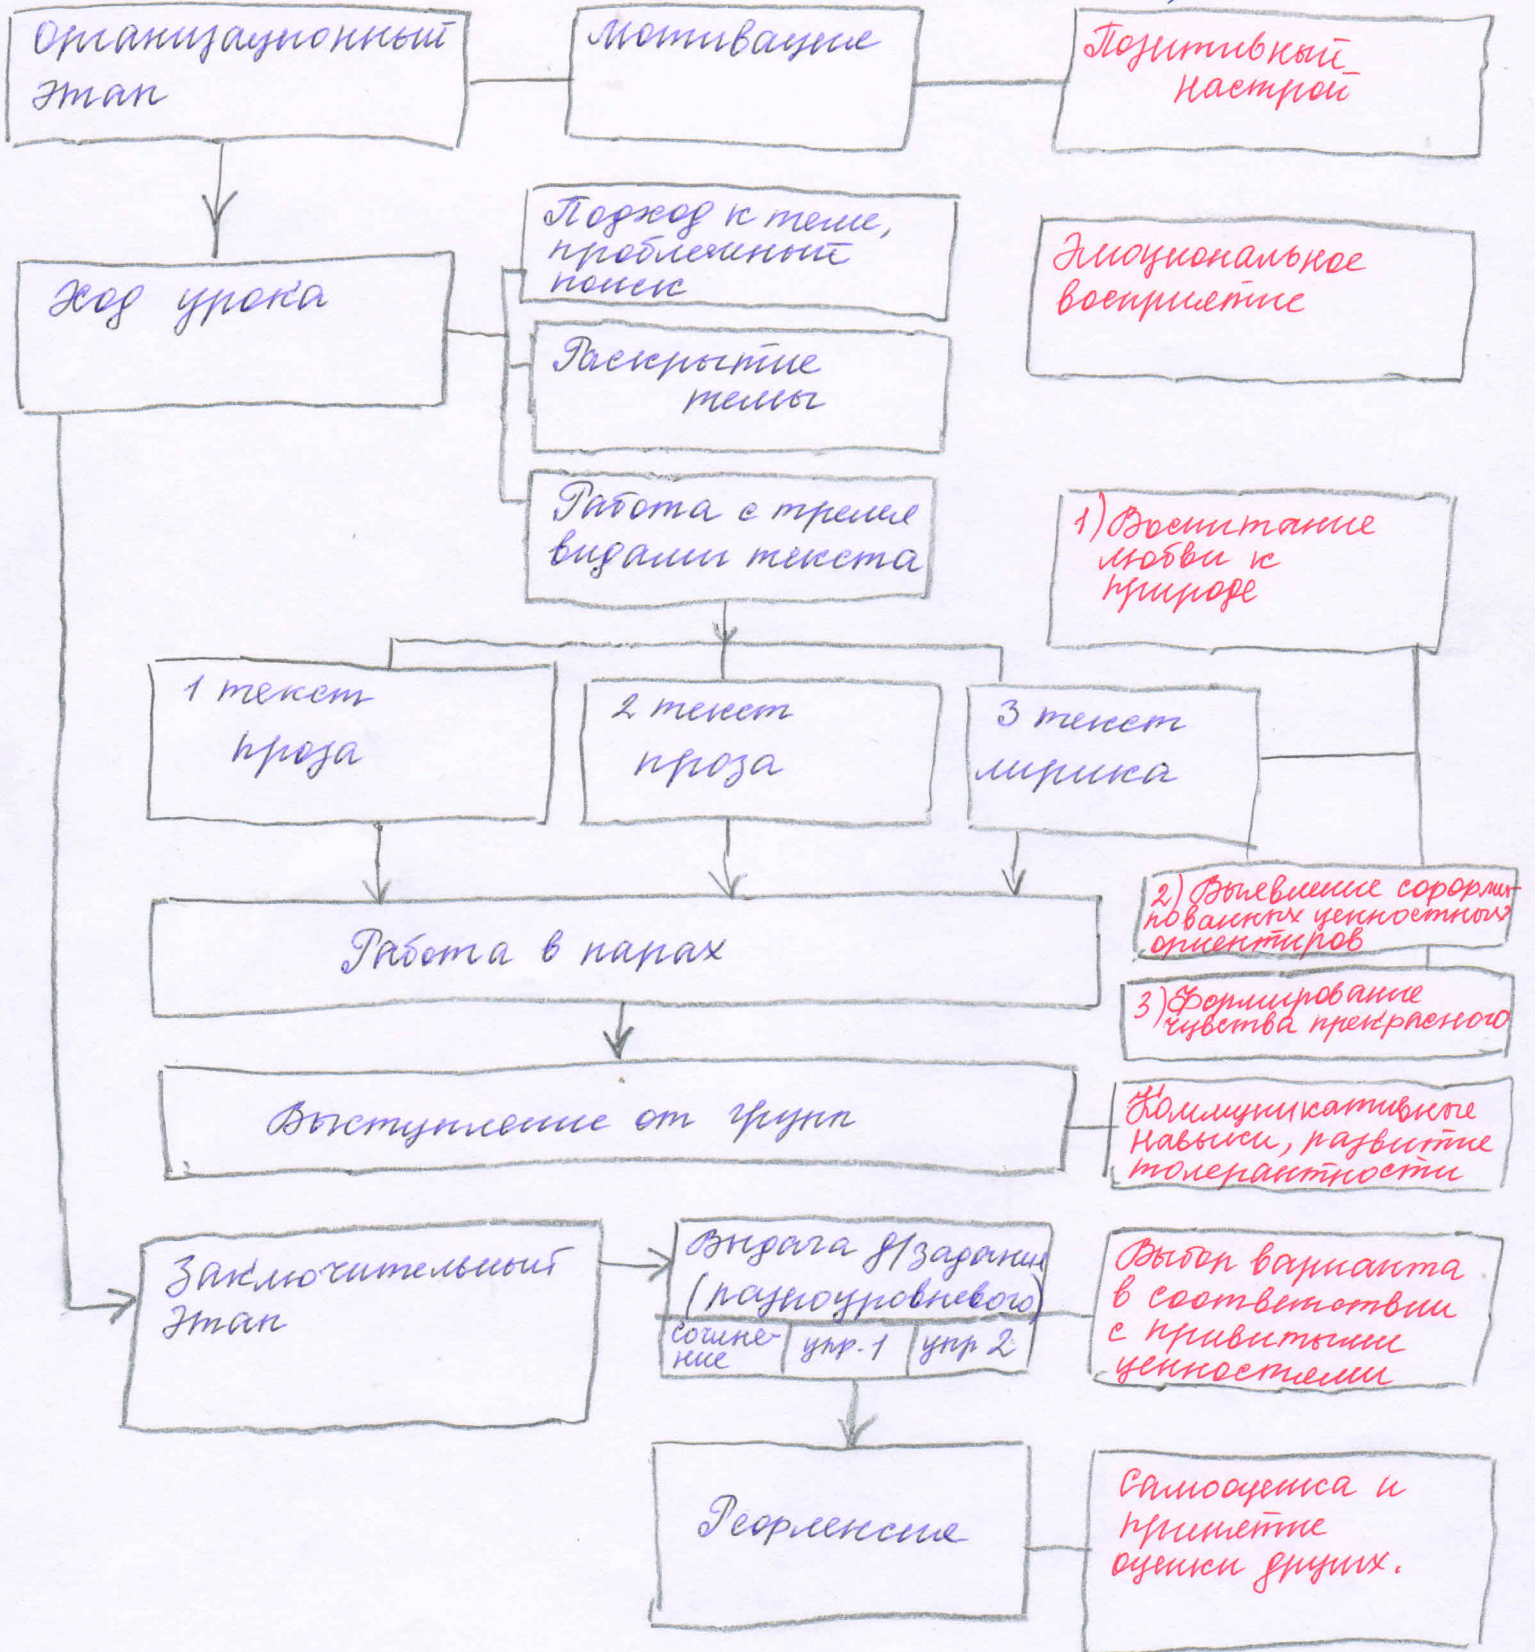 Организационный
этап
Мотивация
Позитивный
настрой
Ход урока
Подход к теме,
проблемный
поиск
Эмоциональное
восприятие
Раскрытие
темы
Работа с тремя
видами текста
1) Воспитание
любви к
природе
1 текст
проза
2 текст
проза
3 текст
лирика
2) Выявление сформи-
рованных ценностных
ориентиров
Работа в парах
3) Формирование
чувства прекрасного
Выступление от групп
Коммуникативные
навыки, развитие
толерантности
Заключительный
этап
Выдача д/задания
(разноуровневого)
сочине-
ние
упр. 1
упр 2
Выбор варианта
в соответствии
с привитыми
ценностями
Рефлексия
Самооценка и
принятие
оценки других.